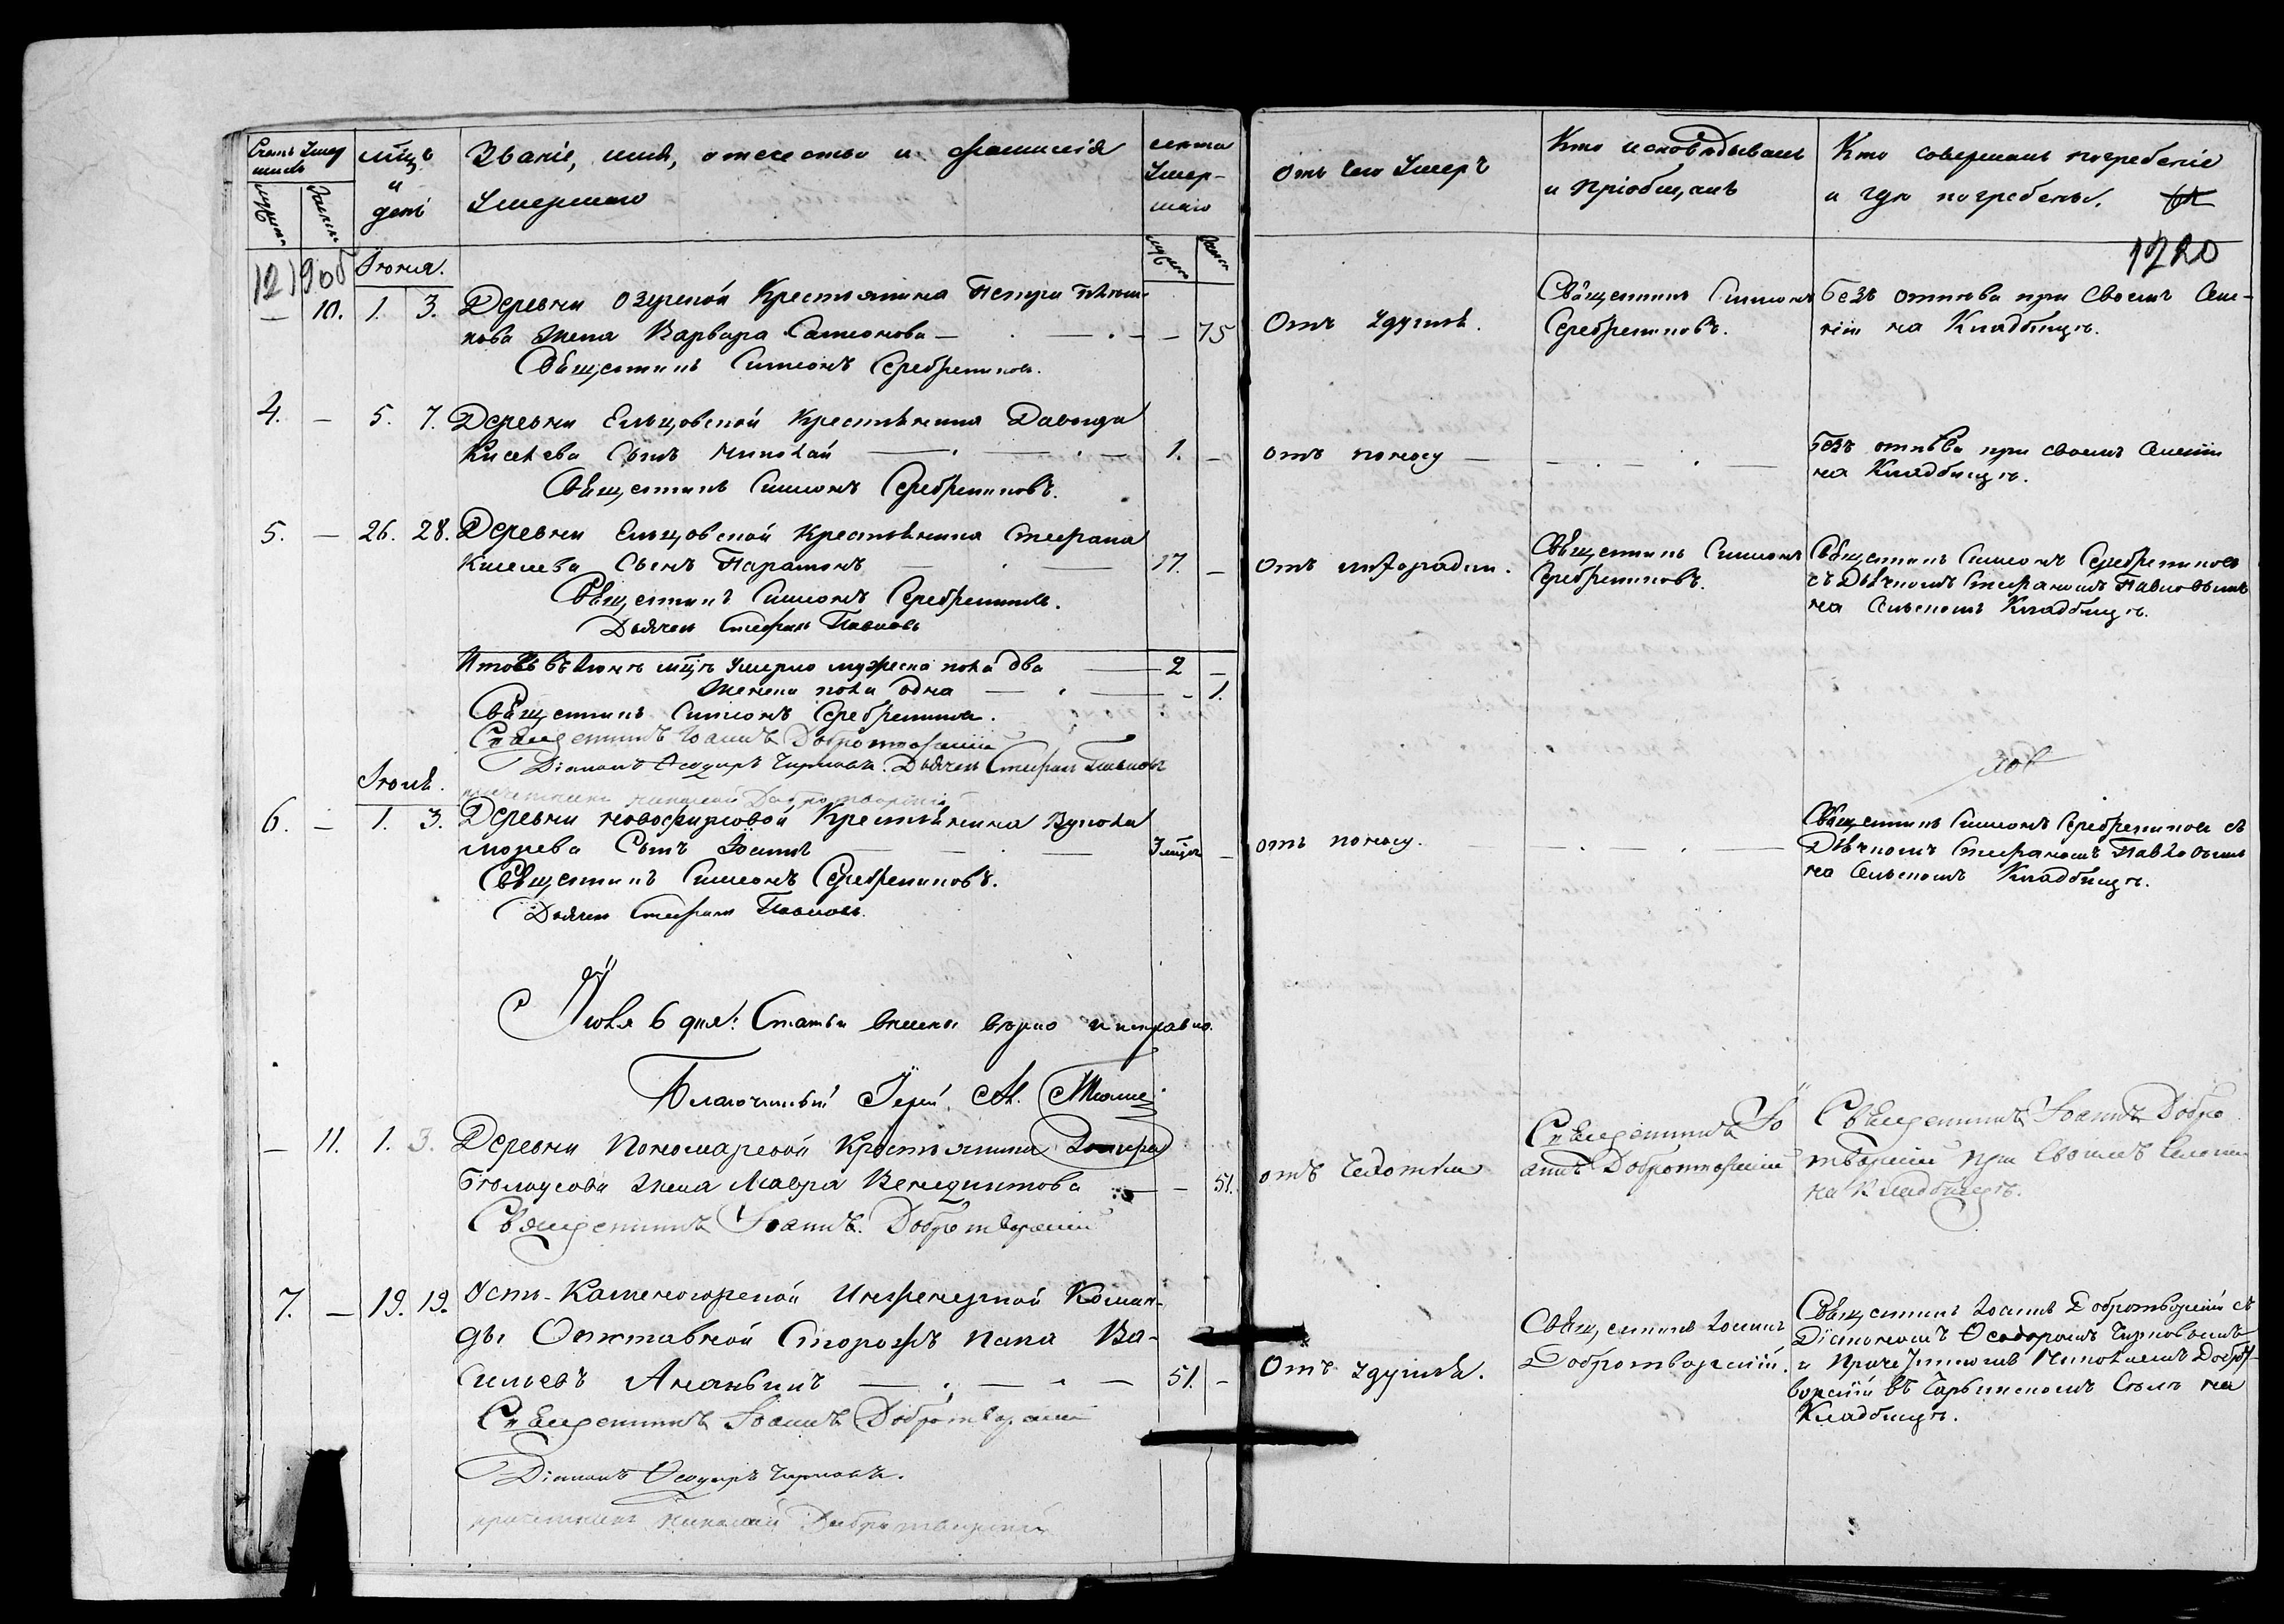 Счетъ Умер
шихъ
мцъ
и
день
Званіе, имя, отечество и фамилія
Умершаго
лета
Умер-
шаго
Отъ чего Умеръ
Кто исповѣдывалъ
и пріобщалъ
Кто совершалъ погребеніе
и гдѣ погребены.
1220
Іюня.
— 10. 1. 3. Деревни Озерной Крестьянина Петра
жена Варвара Самсонова — — 75
Священникъ Симеонъ Серебрениковъ.
Отъ удушья.
Священникъ Симеонъ
Серебрениковъ.
безъ отпѣва при своемъ Селе-
ніи на Кладбищѣ.
4. — 5. 7. Деревни Ельцовской Крестьянина Давыда
Киселева Сынъ Николай — 1. —
Священникъ Симеонъ Серебрениковъ.
отъ поносу —
безъ отпѣва при своемъ Селеніи
на Кладбищѣ.
5. — 26. 28. Деревни Ельцовской Крестьянина Стефана
Киселева Сынъ Парамонъ — 17. —
Священникъ Симеонъ Серебрениковъ.
Дьячекъ Стефанъ Павловъ
Отъ лихорадки.
Священникъ Симеонъ
Серебрениковъ.
Священникъ Симеонъ Серебрениковъ
съ Дьячкомъ Стефаномъ Павловымъ
на Сельскомъ Кладбищѣ.
Итого въ Іюнѣ мцѣ Умерло мужеска пола два — 2 —
Женска пола одна — - 1.
Священникъ Симеонъ Серебрениковъ.
Священникъ Іоаннъ Добротворскій
Діаконъ Ѳеодоръ Чирковъ. Дьячекъ Стефанъ Павловъ
причетникъ Николай Добротворскій
Іюль.
6. — 1. 3. Деревни Крестьянина Вукола
Сынъ Іоаннъ —
Священникъ Симеонъ Серебрениковъ.
Дьячекъ Стефанъ Павловъ.
отъ поносу.
Священникъ Симеонъ Серебрениковъ съ
Дьячкомъ Стефаномъ Павловымъ
на Сельскомъ Кладбищѣ.
Іюля 6 дня: Статьи внесены вѣрно и исправно.
Благочинный Іерей
— 11. 1. 3. Деревни Пономаревой Крестьянина
Жена Мавра Венедиктова — — 51.
Священникъ Іоаннъ Добротворскій
отъ чахотки
Священникъ Іо
аннъ Добротворскій
Священникъ Іоаннъ Добро
творскій при своемъ селеніи
на Кладбищѣ.
7. — 19. 19. Усть-Каменогорской Инженерной Коман-
ды Отставной Сторожъ Ва-
сильевъ Ананьинъ — 51. —
Священникъ Іоаннъ Добротворскій
Діаконъ Ѳеодоръ Чирковъ.
причетникъ Николай Добротворскій
Отъ удушья.
Священникъ Іоаннъ
Добротворскій.
Священникъ Іоаннъ Добротворскій съ
Діакономъ Ѳеодоромъ Чирковымъ
и Причетникомъ Николаемъ Доброт-
ворскій въ Чарышскомъ Селѣ на
Кладбищѣ.